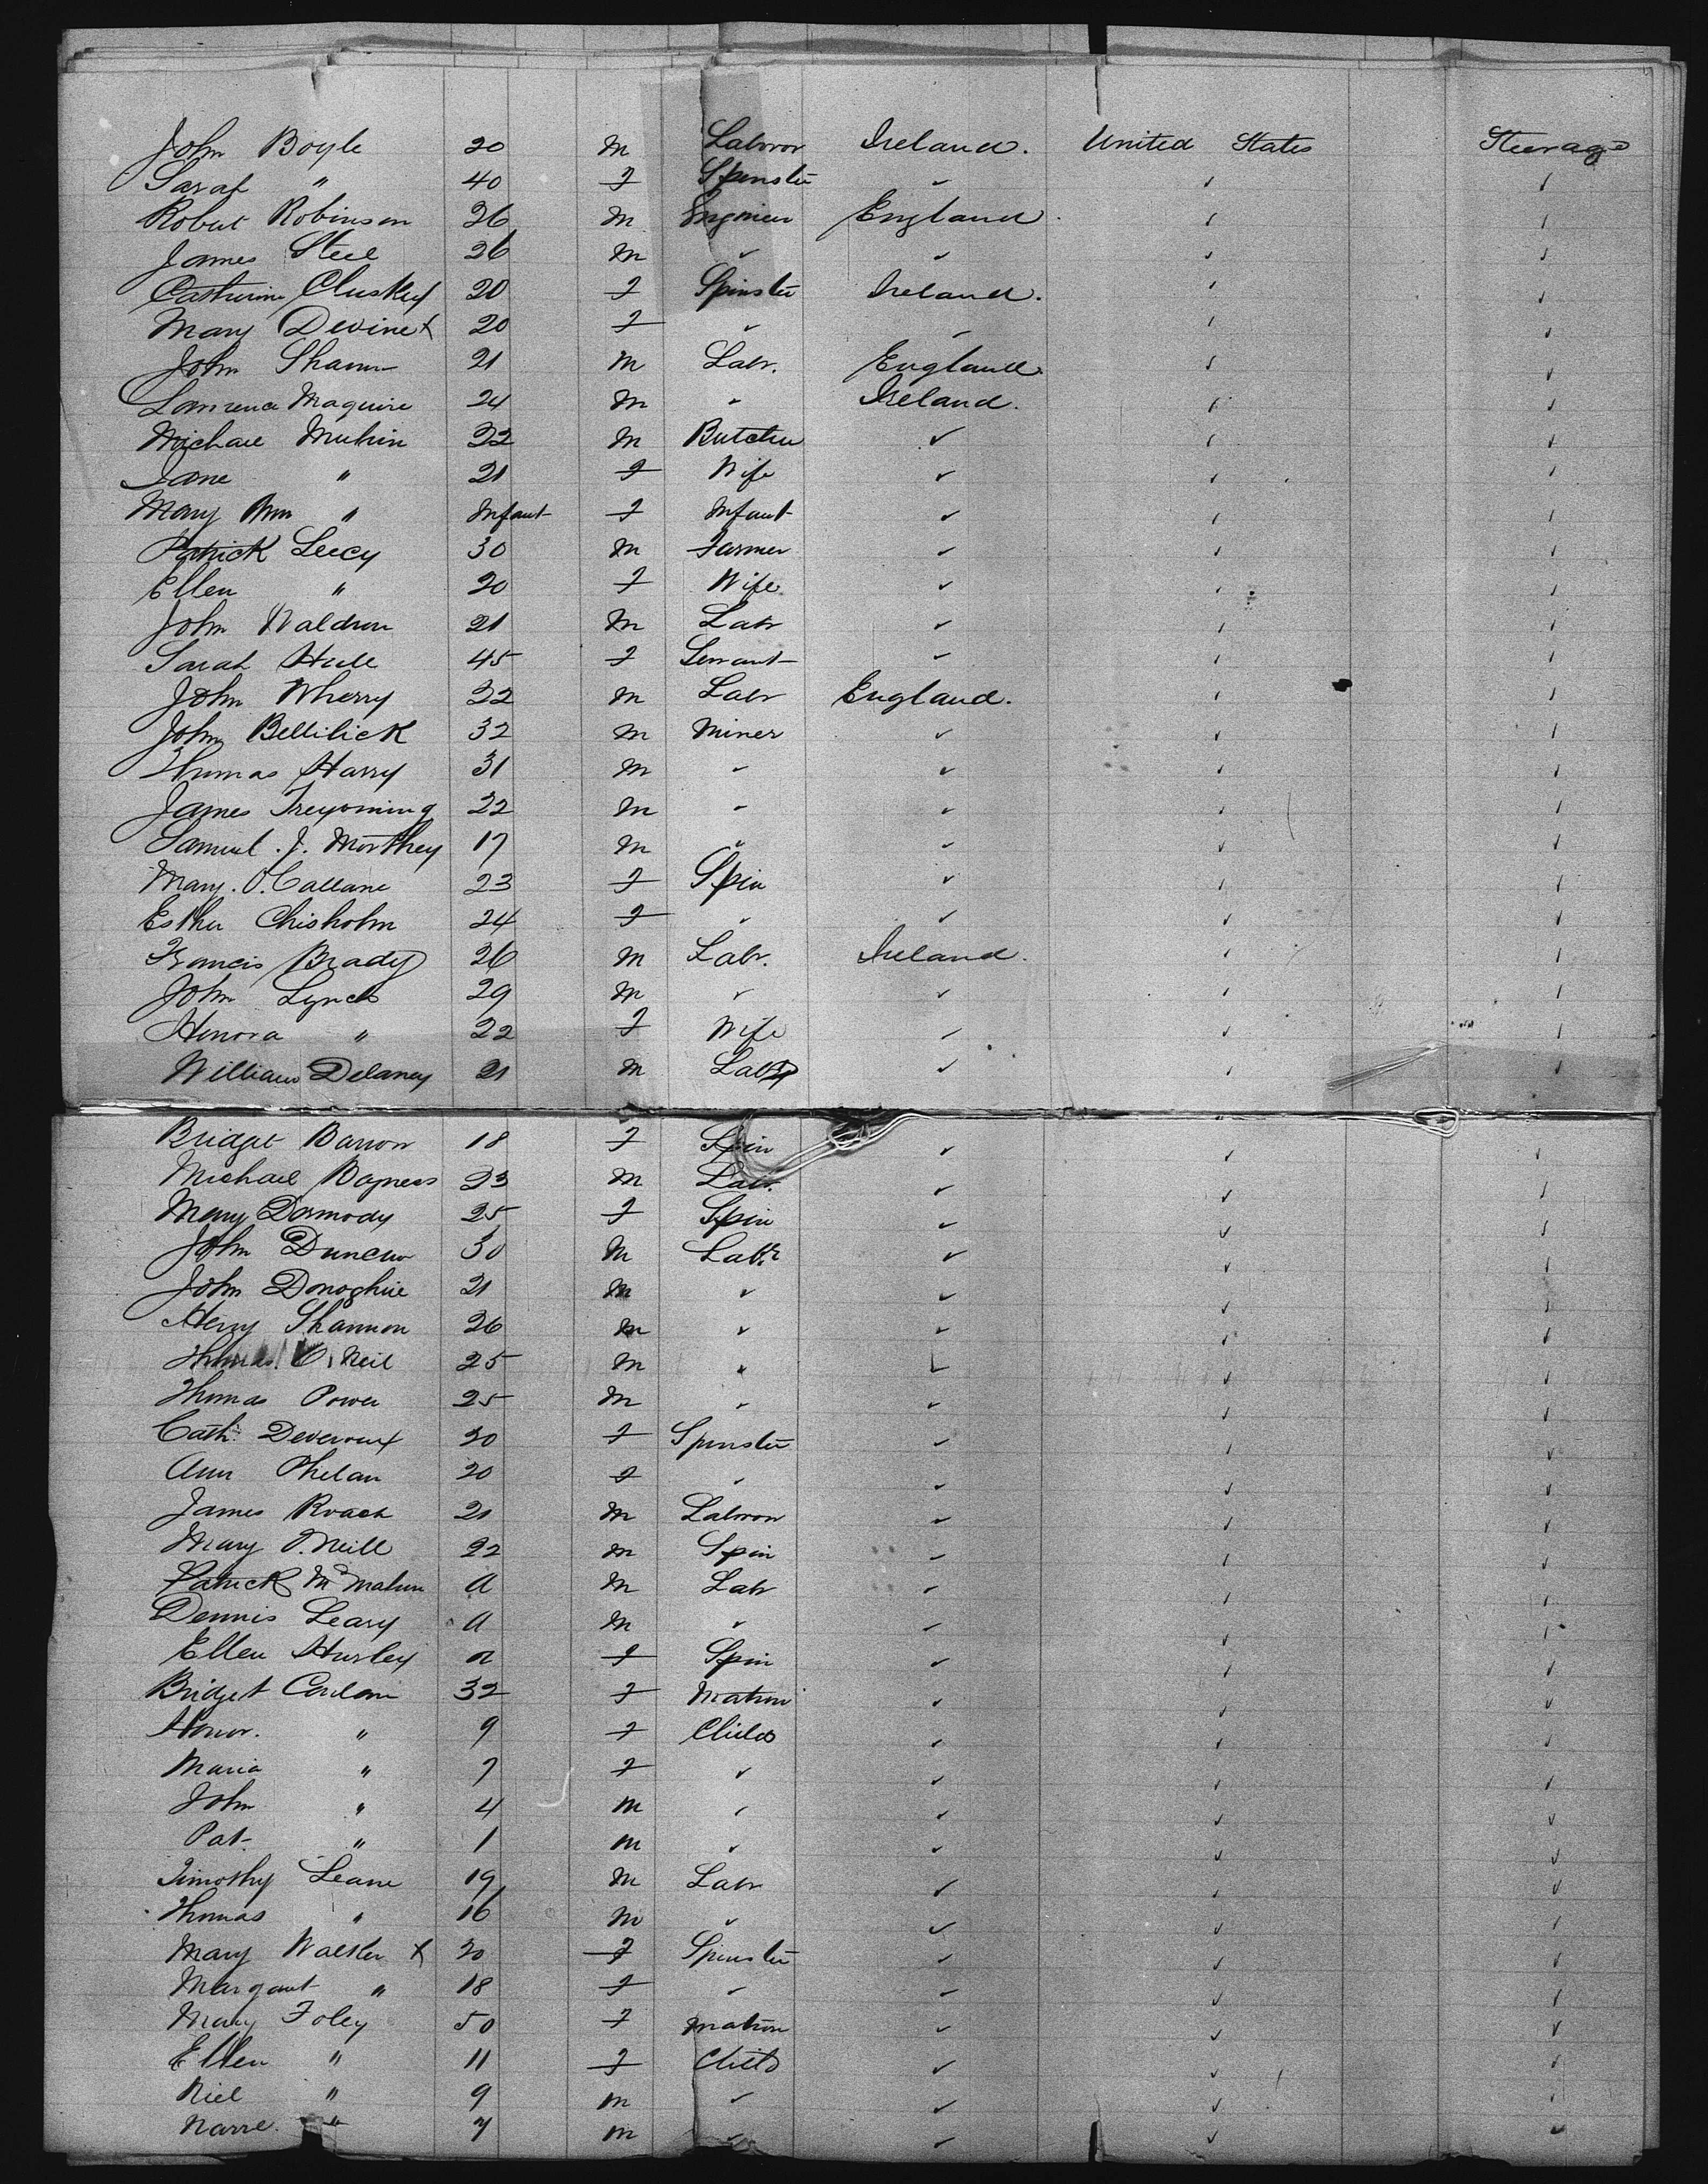 John Boyle 20 m Laboror Ireland. United States Steerage
Sarah " 40 f Spinster ✓ ✓ ✓
Robert Robinson 26 m Engineer England. ✓ ✓
James Steel 26 m ✓ ✓ ✓ ✓
Catherine Cluskey 20 f Spinster Ireland. ✓ ✓
Mary Devine x 20 f ✓ ✓ ✓ ✓
John Shann 21 m Labr. England. ✓ ✓
Lawrence Maguire 24 m ✓ Ireland. ✓ ✓
Michael Mukin 32 m Butcher ✓ ✓ ✓
Jane " 21 f Wife ✓ ✓ ✓
Mary Ann " Infant f Infant ✓ ✓ ✓
Patrick Leecy 30 m Farmer ✓ ✓ ✓
Ellen " 20 f Wife ✓ ✓ ✓
John Waldron 21 m Labr ✓ ✓ ✓
Sarah Hull 45 f Servant ✓ ✓ ✓
John Wherry 32 m Labr England. ✓ ✓
John Bellilick 32 m Miner ✓ ✓ ✓
Thomas Harry 31 m ✓ ✓ ✓ ✓
James Treyoming 22 m ✓ ✓ ✓ ✓
Samuel. J. Morthey 17 m ✓ ✓ ✓ ✓
Mary. O. Callane 23 f Spin ✓ ✓ ✓
Esther Chisholm 24 f ✓ ✓ ✓ ✓
Francis Brady 26 m Labr. Ireland. ✓ ✓
John Lynch 29 m ✓ ✓ ✓ ✓
Honora " 22 f Wife ✓ ✓ ✓
William Delaney 21 m Labr ✓ ✓ ✓
Bridget Barron 18 f Spin ✓ ✓ ✓
Michael 23 m Labr. ✓ ✓ ✓
Mary Dormody 25 f Spin ✓ ✓ ✓
John Duncan 30 m Labr. ✓ ✓ ✓
John Donoghue 21 m ✓ ✓ ✓ ✓
Henry Shannon 26 m ✓ ✓ ✓ ✓
Thomas. O. Neil 25 m ✓ ✓ ✓ ✓
Thomas Power 25 m ✓ ✓ ✓ ✓
Cath. Deveroux 20 f Spinster ✓ ✓ ✓
Ann Phelan 20 f ✓ ✓ ✓ ✓
James Roach 21 m Laboror ✓ ✓ ✓
Mary O. Neill 22 m Spin ✓ ✓ ✓
Patrick McMahon a m Labr ✓ ✓ ✓
Dennis Leary a m ✓ ✓ ✓ ✓
Ellen Hurley a f Spin ✓ ✓ ✓
Bridget Conlon 32 f Matron ✓ ✓ ✓
Honor. " 9 f Child ✓ ✓ ✓
Maria " 7 f ✓ ✓ ✓ ✓
John " 4 m ✓ ✓ ✓ ✓
Pat " 1 m ✓ ✓ ✓ ✓
Timothy Leane 19 m Labr ✓ ✓ ✓
Thomas " 16 m ✓ ✓ ✓ ✓
Mary Walker x 20 f Spinster ✓ ✓ ✓
Margaret " 18 f ✓ ✓ ✓ ✓
Mary Foley 50 f Matron ✓ ✓ ✓
Ellen " 11 f Child ✓ ✓ ✓
Niel " 9 m ✓ ✓ ✓ ✓
Narre. " 7 m ✓ ✓ ✓ ✓